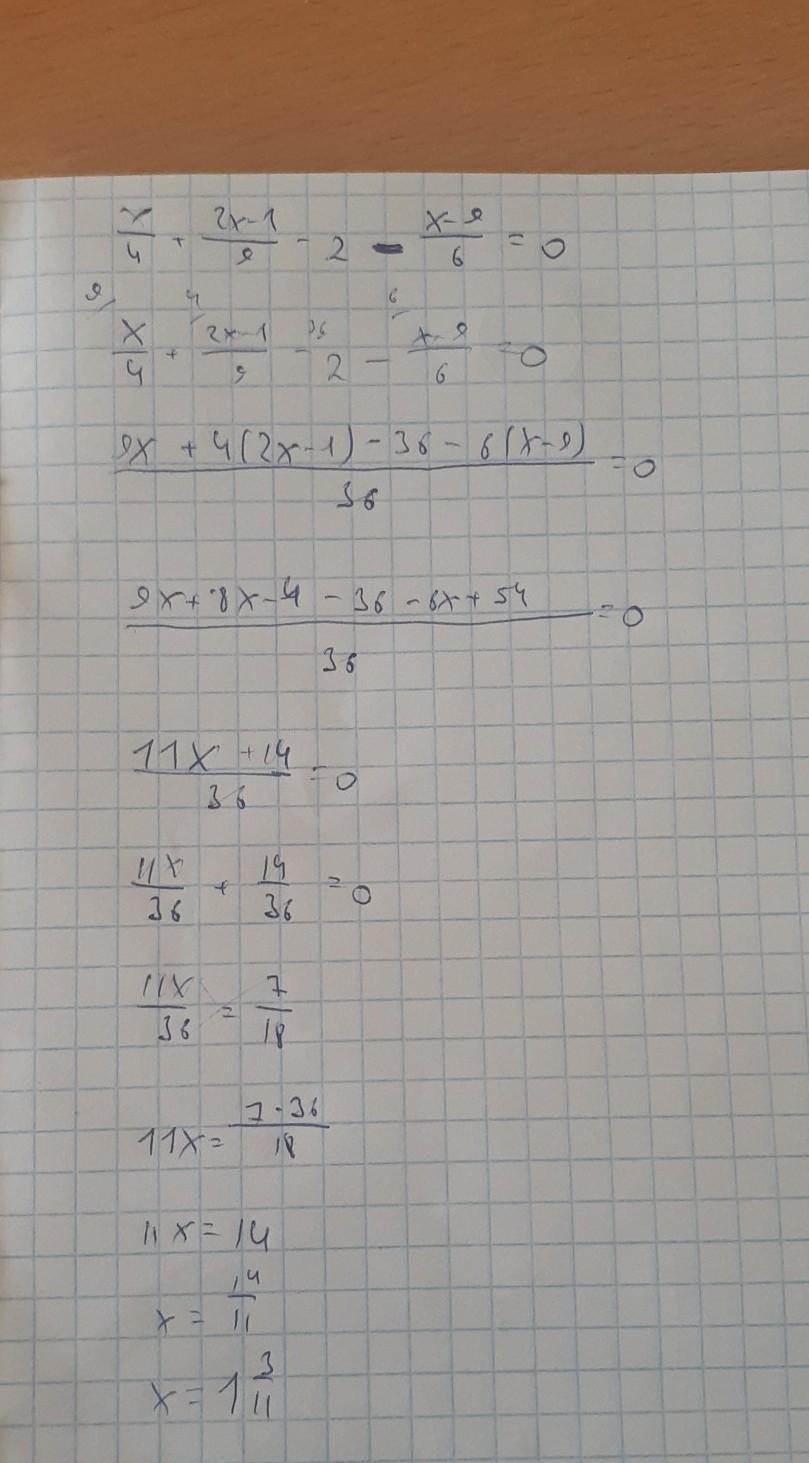 x/4 + 2x-1/9 - 2 - x-9/6 = 0
9/ 4/ 36 6/
x/4 + 2x-1/9 - 2 - x-9/6 = 0
9x + 4(2x-1) - 36 - 6(x-9)/36 = 0
9x + 8x - 4 - 36 - 6x + 54/36 = 0
11x + 14/36 = 0
11x/36 + 14/36 = 0
11x/36 = 7/18
11x = 7·36/18
11x = 14
x = 14/11
x = 1 3/11